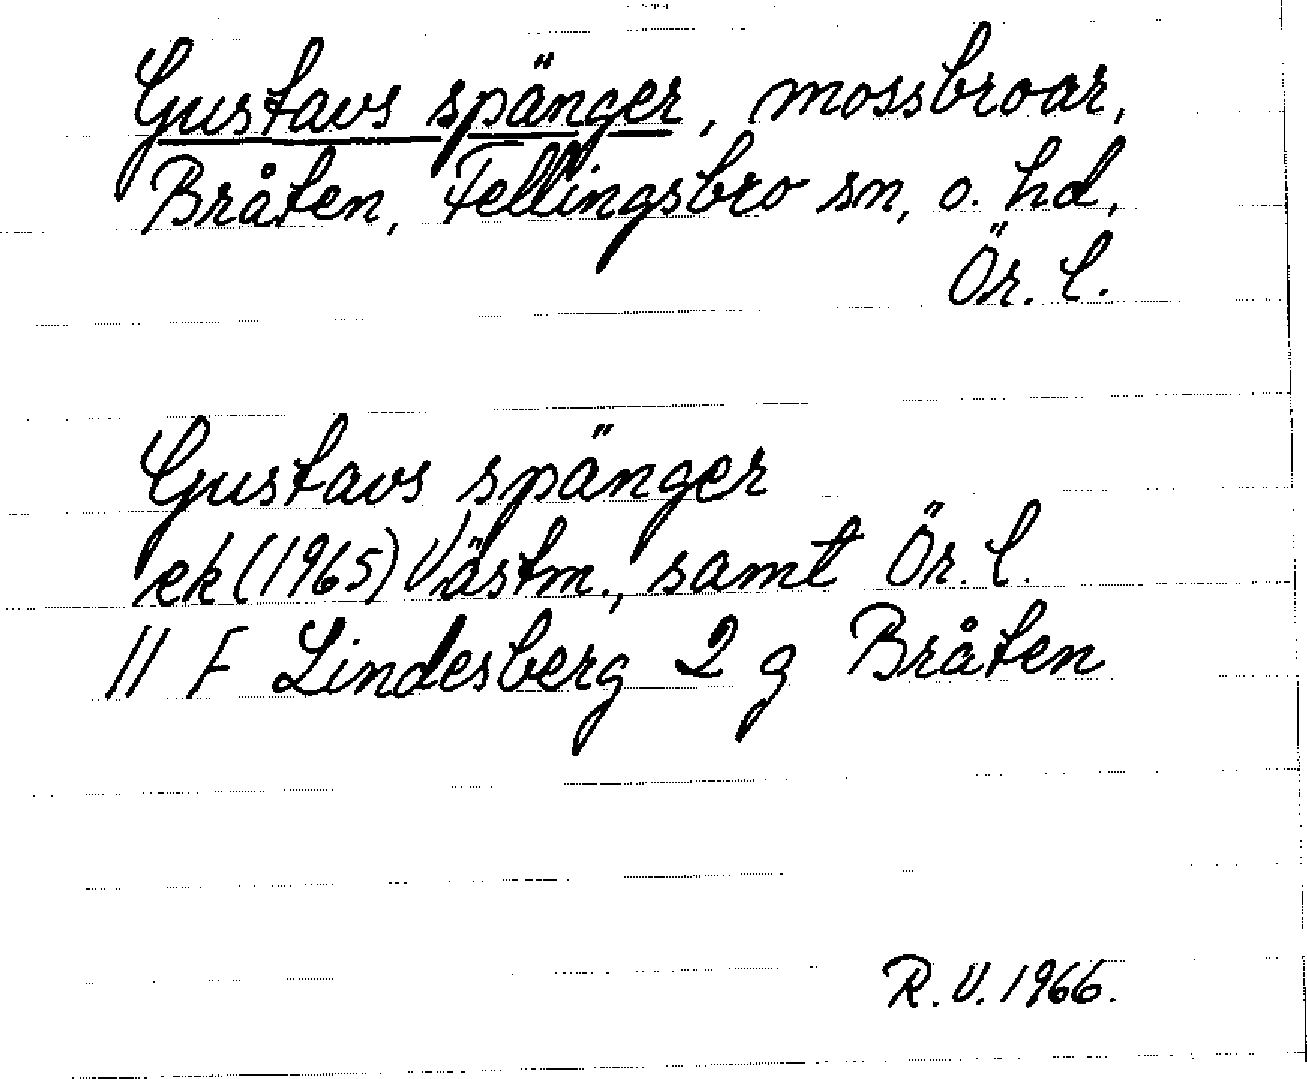 Gustavs spänger, mossbroar,
Bråten, Fellingsbro sn, o. hd,
Ör. l.
Gustavs spänger
ek (1965) Västm., samt Ör. l.
11 F Lindesberg 2 g Bråten
R.V. 1966.